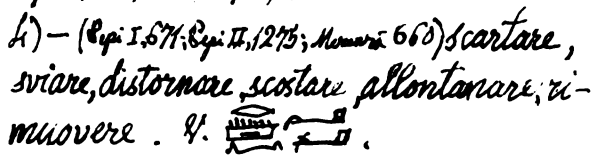 4) — (Pepi I, 671; Pepi II, 1275; Mernarâ 660) scartare,
sviare, distornare, scostare, allontanare, ri-
muovere. V.